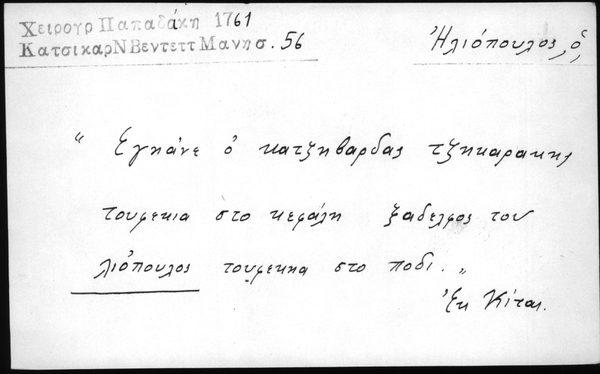 Χειρογρ Παπαδάκη 1761
Κατσικαρ Ν Βεντεττ Μανησ. 56
Ἡλιόπουλος, ὁ
" Εγηάνε ὁ κατζηβαρδας τζηκαρακης
τουφεκια στο κεφάλη ξαδελφος του
λιόπουλος τουφεκηα στο ποδι. "
Ἐκ Κίτας.